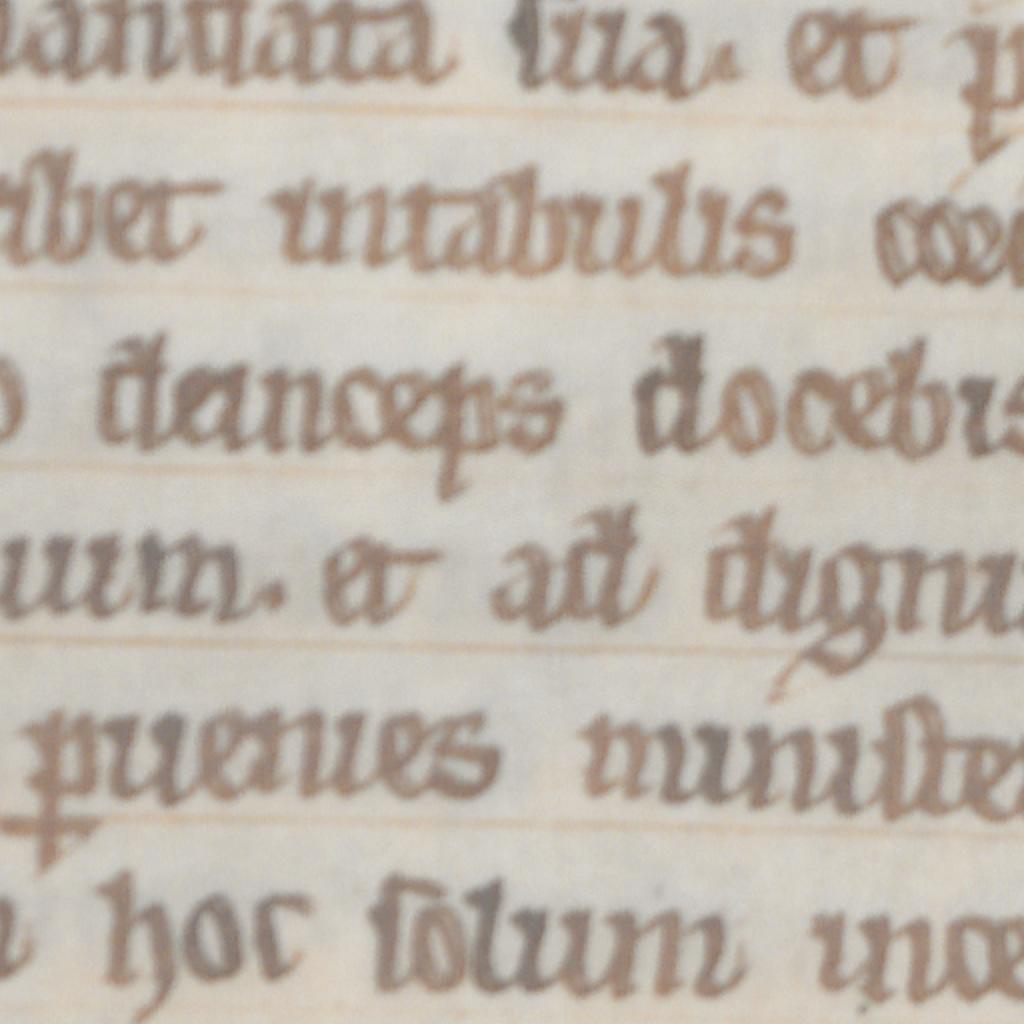 mandata sua. et p
ribet intabulis coe
o deinceps docebis
uum. et ad digni
ꝑuenies minister
hoc solum ince